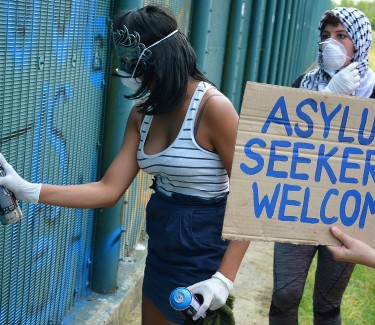 ASYLU
SEEKER
WELCOM